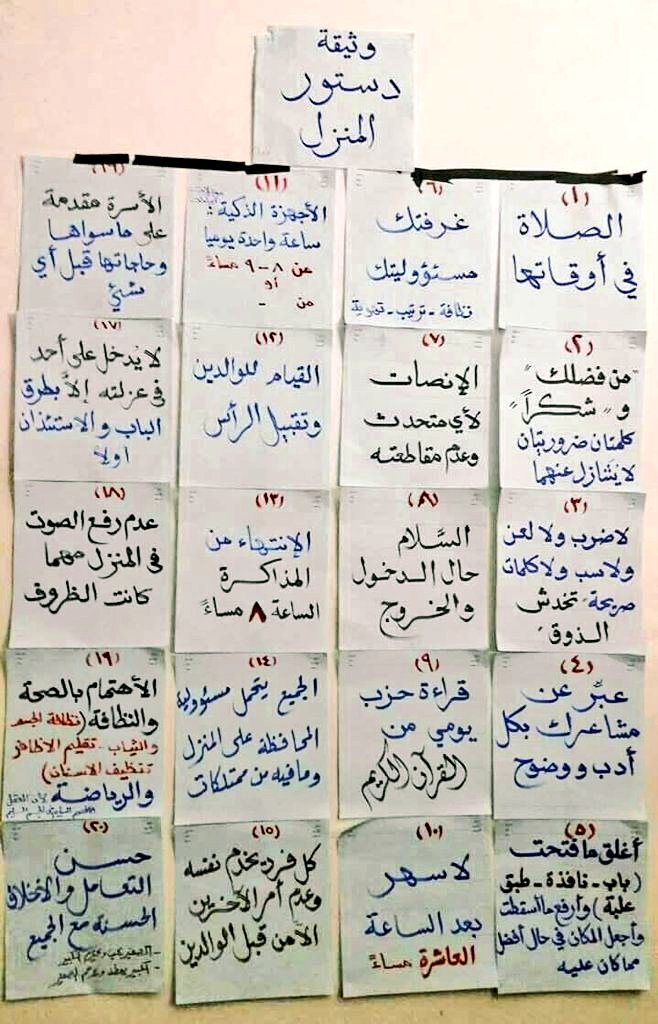 وثيقة
دستور
المنزل
(١)
الصلاة
في أوقاتها
(٢)
"من فضلك"
و "شكراً"
كلمتان ضروريتان
لا يتنازل عنهما
(٣)
لا ضرب ولا لعن
ولا سب ولا كلمات
صريحة تخدش
الذوق
(٤)
عبّر عن
مشاعرك بكل
أدب ووضوح
(٥)
أغلق ما فتحت
(باب - نافذة - طبق
علبة) وأرفع ما أسقطت
وأجعل المكان في حال أفضل
مما كان عليه
(٦)
غرفتك
مسئووليتك
نظافة - ترتيب - تهوية
(٧)
الإنصات
لأي متحدث
وعدم مقاطعته
(٨)
السَّلام
حال الدخول
والخروج
(٩)
قراءة حزب
يومي من
القرآن الكريم
(١٠)
لا سهر
بعد الساعة
العاشرة مساءً
(١١)
الأجهزة الذكية:
ساعة واحدة يوميا
من ٨-٩ مساءً
أو
من -
(١٢)
القيام للوالدين
وتقبيل الرأس
(١٣)
الإنتهاء من
المذاكرة
الساعة ٨ مساءً
(١٤)
الجميع يتحمل مسئوولية
المحافظة على المنزل
وما فيه من ممتلكات
(١٥)
كل فرد يخدم نفسه
وعدم أمر الآخرين
الا من قبل الوالدين
(١٦)
الأسرة مقدمة
على ما سواها
وحاجاتها قبل أي
شئ
(١٧)
لا يُدخل على أحد
في عزلته إلا بطرق
الباب والاستئذان
اولا
(١٨)
عدم رفع الصوت
في المنزل مهما
كانت الظروف
(١٩)
الأهتمام بالصحة
والنظافة (نظافة الجسم
والثياب - تقليم الاظافر
تنظيف الاسنان)
والرياضة لأن العقل
السليم في الجسم السليم
(٢٠)
حسن
التعامل والأخلاق
الحسنة مع الجميع
- الصغير يحب ويحترم الكبير
- الكبير يعطف ويرحم الصغير